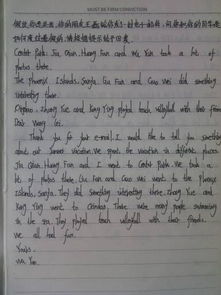 MUST BE FIRM CONVICTION
假使你是王磊,你的朋友
如何度过暑假的,请根据提示给予回复
Central Park: Jia Qian, Huang Fan and Wu Yan took a lot of
photos there.
The Phoenix Islands, Sanya: Liu Fan and Guo Wei did something
interesting there.
Qingdao: Zhang Yue and Kong Ying played beach volleyball with their friends
Dear Wang Lei,
Thank you for your e-mail. I would like to tell you something
about our summer vacation. We spent the vacation in different places.
Jia Qian, Huang Fan and I went to Central Park. We took a
lot of photos there. Liu Fan and Guo Wei went to the Phoenix
Islands, Sanya. They did something interesting there. Zhang Yue and
Kong Ying went to Qingdao. There were many people swimming
in the sea. They played beach volleyball with their friends.
we all feel fun.
Yours,
Wu Yan.